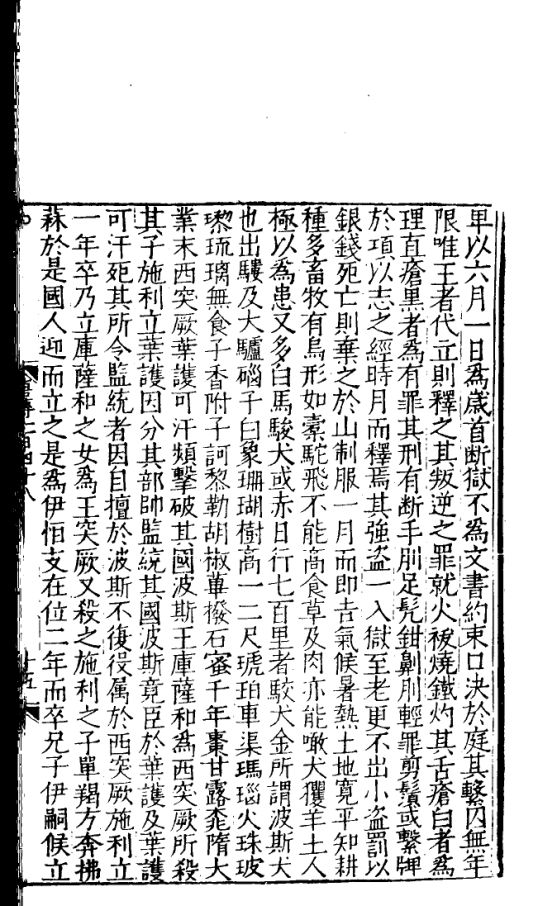 早以六月一日為歲首斷獄不為文書約束口決於庭其繫囚無年
限唯王者代立則釋之其叛逆之罪就火祓燒鐵灼其舌瘡白者為
理直瘡黒者為有罪其刑有断手刖足髠鉗劓刖輕罪剪鬚或繫牌
於項以志之經時月而釋焉其強盗一入獄至老更不出小盗罰以
銀錢死亡則棄之於山制服一月而即吉氣候暑熱土地寛平知耕
種多畜牧有鳥形如橐駝飛不能高食草及肉亦能噉犬玃羊土人
極以為患又多白馬駿犬或赤日行七百里者駮犬金所謂波斯犬
也出騾及大驢碯子白象珊瑚樹高一二尺琥珀車渠瑪瑙火珠玻
瓈琉璃無食子香附子訶黎勒胡椒蓽撥石蜜千年棗甘露桃隋大
業末西突厥葉護可汗頻擊破其國波斯王庫薩和為西突厥所殺
其子施利立葉護因分其部帥監統其國波斯竟臣於葉護及葉護
可汗死其所令監統者因自擅於波斯不復役屬於西突厥施利立
一年卒乃立庫薩和之女為王突厥又殺之施利之子單羯方奔拂
菻於是國人迎而立之是為伊怛支在位二年而卒兄子伊嗣候立
十五